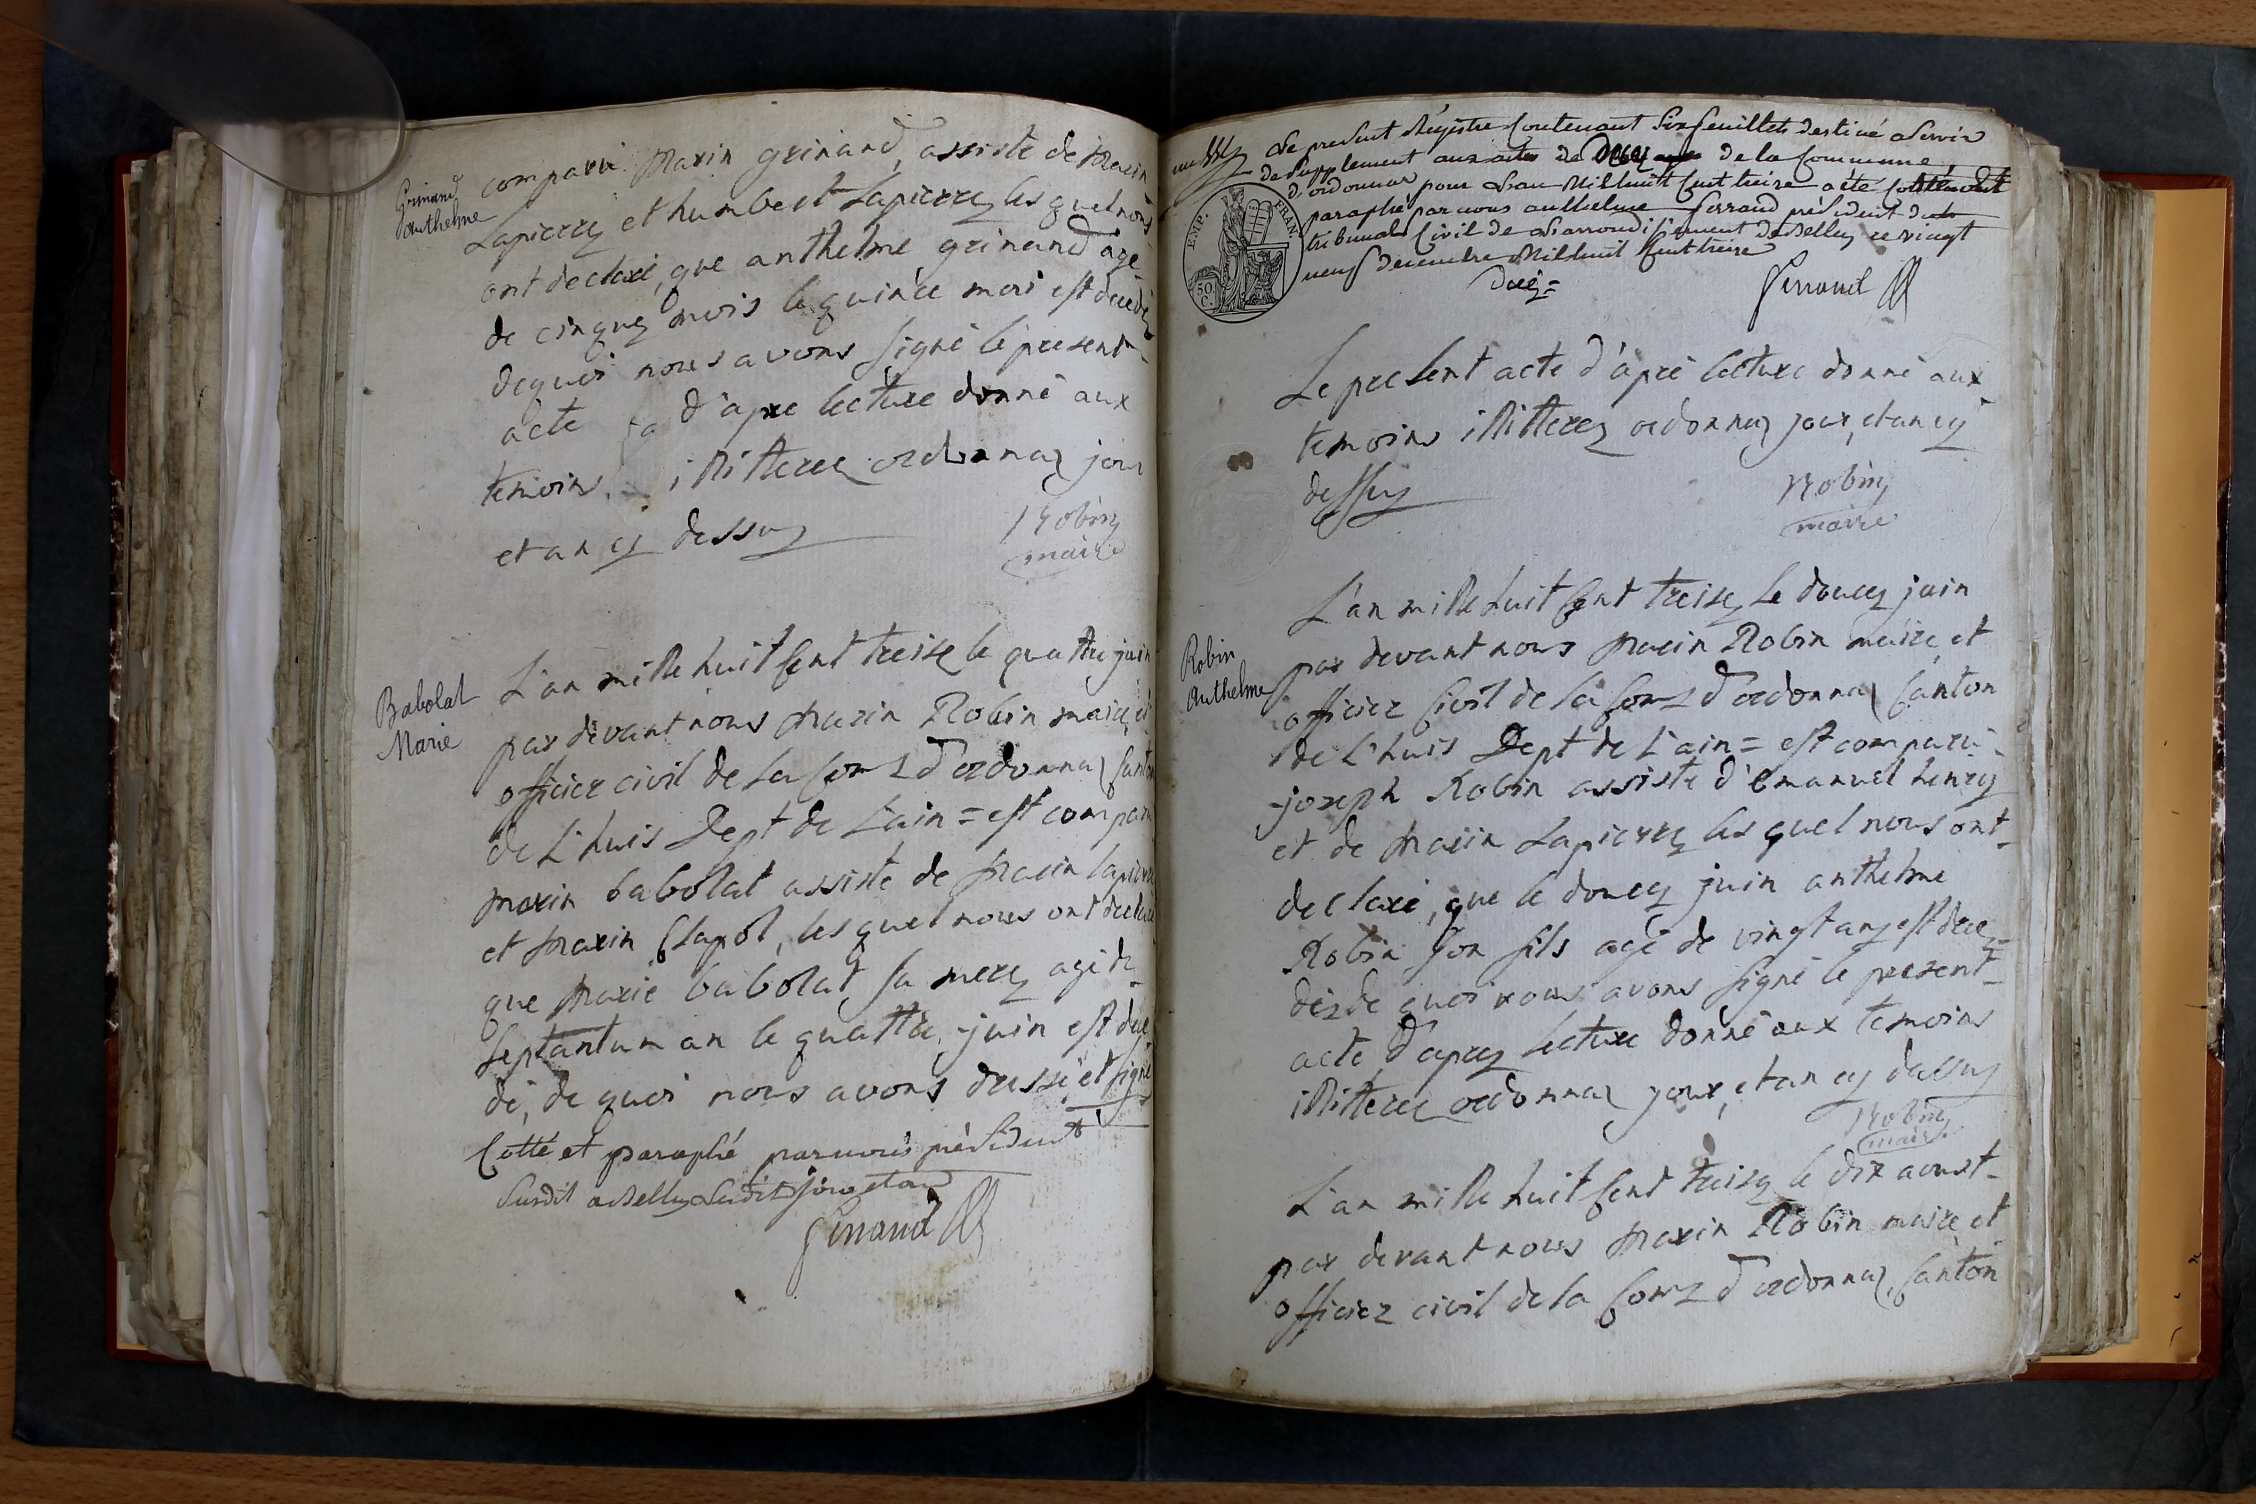 Grinand
Anthelme
comparu marin grinand, assisté de marin
Lapierre et humbert Lapierre les quel nous
ont declaré, que anthelme grinand agé
de cinque mois le quince mai est decedé
dequoi nous avons signé le present
acte d'apre lecture donné aux
temoins illiteree ordonnaz jour
et an cy dessus
Robin
maire
Babolat
Marie
L'an mille huit cent treize le quattre juin
par devant nous marin Robin maire et
officier civil de la com d'ordonnaz canton
de L'huis Dept de L'ain = est comparu
marin babolat assisté de marin lapierre
et marin Clapot, les quel nous ont declaré
que marie babolat sa mere agé de
septantun an le quattre juin est dece
dé, de quoi nous avons dressé et signé
Cotté et paraphé par nous président
susdit a Belley susdits jour et an
Ferrand
Le present Régistre Contenant six feuillets destiné a servir
de Supplement aux actes de Décés de la Commune
d'ordonnaz pour L'an Mil huit Cent treize a été Cotté et
paraphé par nous anthelme Ferrand président du
tribunal Civil de L'arrondissement de Belley ce vingt
neuf decembre Mil huit Cent treize
EMP. FRAN.
50
C.
Ferrand
Le present acte d'apré lecture donné aux
temoins illiteree ordonnaz jour, et an cy
dessus
Robin
maire
Robin
Anthelme
L'an mille huit cent treize le douce juin
par devant nous marin Robin maire et
officier civil de la com d'ordonnaz canton
de L'huis Dept de L'ain = est comparu
joseph Robin assisté d'emanuel henry
et de marin Lapierre les quel nous ont
declaré, que le douce juin anthelme
Robin son fils agé de vingt ans est dece
dé de quoi nous avons signé le present
acte, d'apres lecture donné aux temoins
illiteree ordonnaz jour, et an cy dessus
Robin
maire
L'an mille huit cent treize le dix aoust
par devant nous marin Robin maire et
officier civil de la com d'ordonnaz, canton